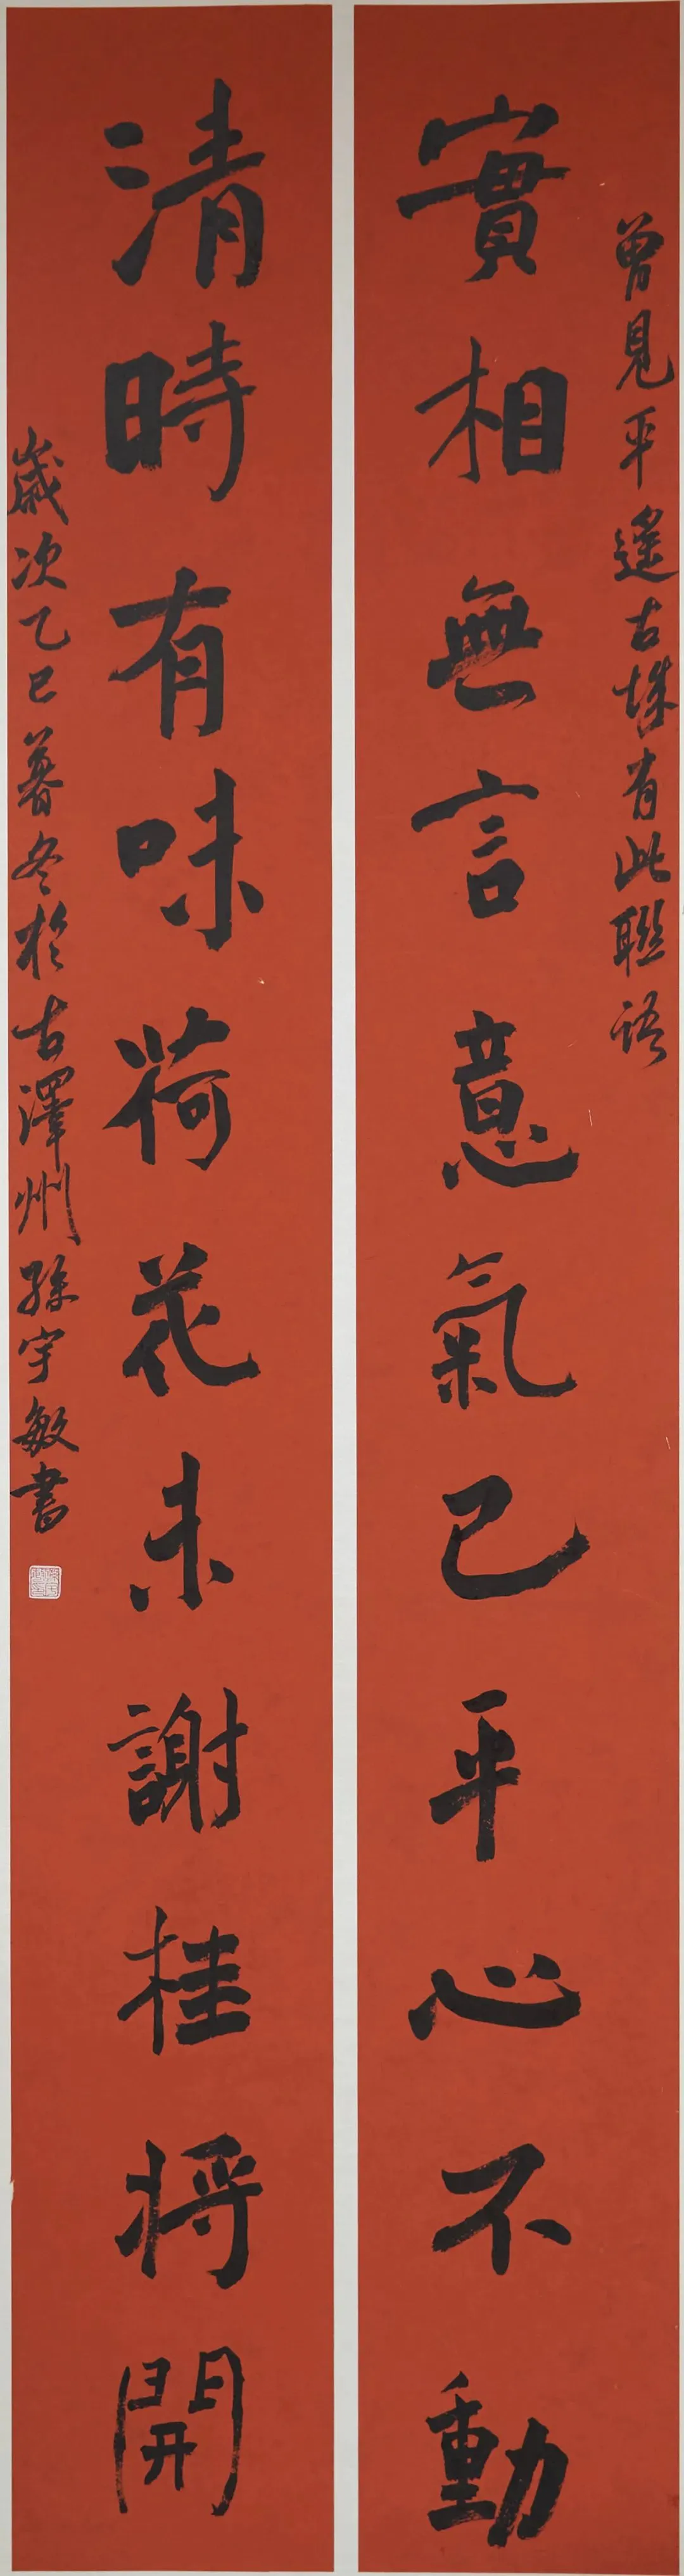 曾見平遙古城有此聯語
實相無言意氣已平心不動
清時有味荷花未謝桂將開
歲次乙巳暮冬於古澤州孫宇敏書